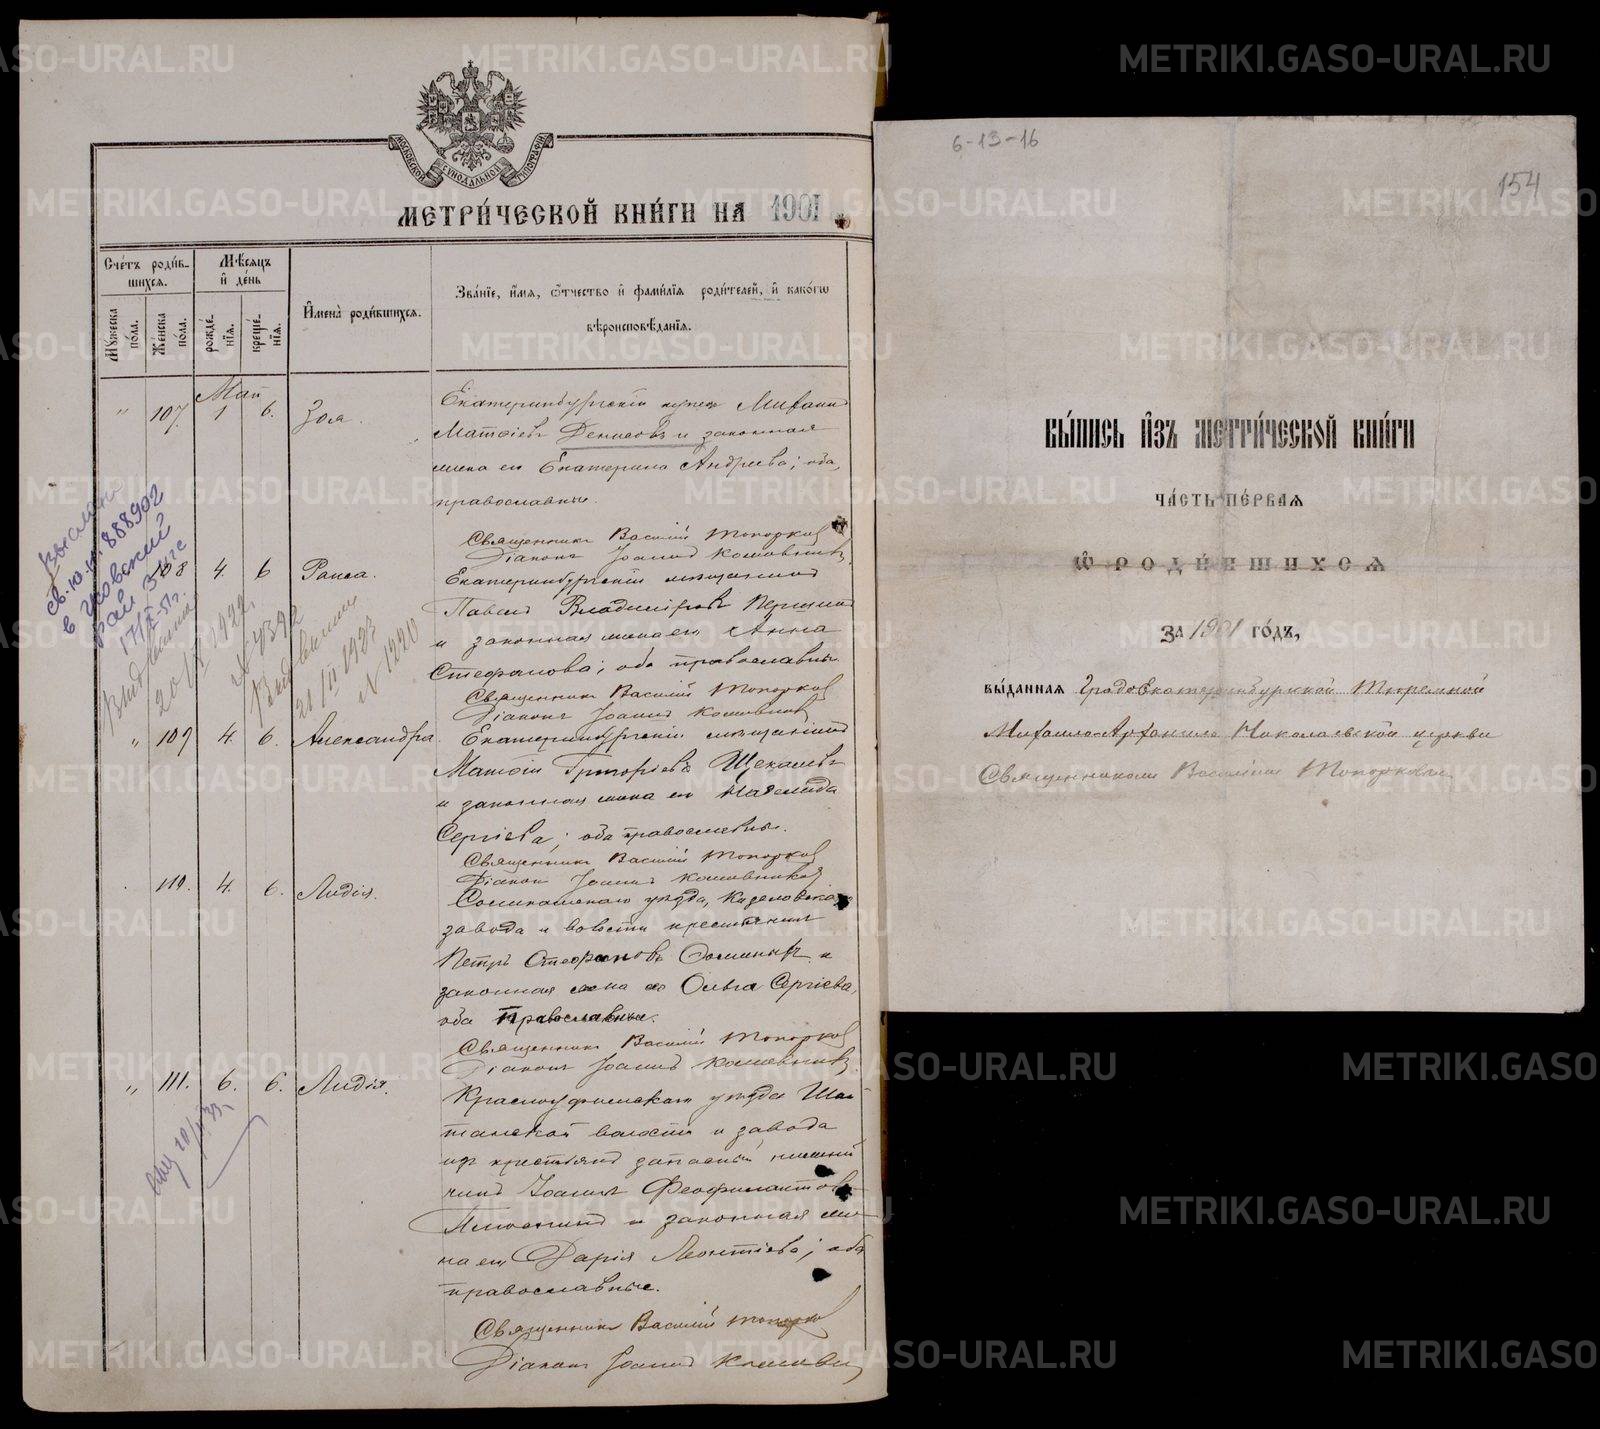 МЕТРИ́ЧЕСКОЙ КНИ́ГИ НА 1901
Сче́тъ роди́в-
шихся.
Мѣ́сяцъ
и҆ де́нь
Мꙋ́жеска по́ла.
Же́нска по́ла.
рожде́нїя.
креще́нїя.
И҆мена̀ роди́вшихся.
Зва́нїе, и҆́мя, ѻ҆́тчество и҆ фами́лїя роди́телей, и҆ како́гѡ
вѣроисповѣ́данїя.
Май
" 107. 1 6. Зоя.
Екатеринбургскій купец Михаил
Матѳіевъ Денисовъ и законная
жена его Екатерина Андреева; оба
православные.
Священникъ Василій Топорков
Діаконъ Іоаннъ
108 4. 6 Раиса.
Екатеринбургскій мѣщанинъ
Павелъ Владиміровъ Першинъ
и законная жена его Анна
Стефанова; оба православные
Священникъ Василій Топорков
Діаконъ Іоаннъ
" 109 4. 6. Александра.
Екатеринбургскій мѣщанинъ
Матѳій Григоріевъ Щекалевъ
и законная жена его Надежда
Сергіева; оба православные.
Священникъ Василій Топорков
Діаконъ Іоаннъ
110. 4. 6. Лидія.
Соликамскаго уѣзда, Кизеловскаго
завода и волости крестьянинъ
Петръ Стефановъ и
законная жена его Ольга Сергіева,
оба православные.
Священникъ Василій Топорков
Діаконъ Іоаннъ
" 111. 6. 6. Лидія.
Красноуфимскаго уѣзда Шай
танской волости и завода
изъ крестьянъ запасный нижній
чинъ Іоаннъ Феофилактовъ
и законная же
на его Дарія Леонтіева; оба
православные.
Священникъ Василій Топорков
Діаконъ Іоаннъ
Выслано
св. 10-Ю 888902
в
рай ЗАГС
Выдвиными
20/ 1922.
№ 4392
21/III 1923
№ 1220
6-13-16
154
ВЫ́ПИСЬ И҆ЗЪ МЕТРИ́ЧЕСКОЙ КНИ́ГИ
ЧА́СТЬ ПЕ́РВАЯ
Ѡ҆ РОДИ́ВШИХСЯ
ЗА 1901 ГО́ДЪ,
вы́данная Градо-Екатеринбургской Тюремной
Михаило-Архангело Николаевской церкви
Священникомъ Василіемъ Топорковым
METRIKI.GASO-URAL.RU